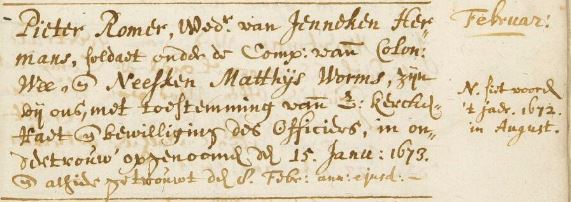 Pieter Romer, Wedr. van Jenneken Her-
mans, soldaet onder de Comp: van Colon:
Wee, en Neesken Matthijs Worms, zijn
bij ons, met toestemming van E: Kercke-
Raet en bewilliging des Officiers, in on-
dertrouw opgenoomen den 15. Janu: 1673.
en alhier getrouwt den 8. Febr: ann: ejusd: -
Februar:
N. fiet voorden
't jaer. 1672.
in August.